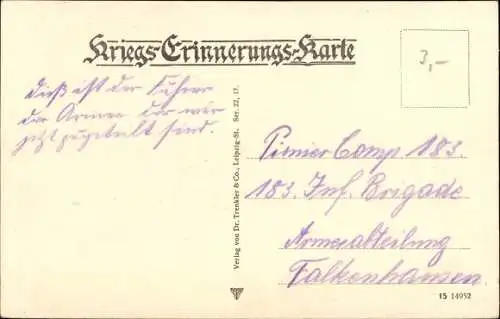 Kriegs-Erinnerungs-Karte
3,-
dieß ist der Führer
der Armee der wir
jetzt zugeteilt sind.
Verlag von Dr. Trenkler & Co., Leipzig-St. Ser. 22, 17.
Pionier Comp 183.
183. Inf. Brigade
Armeeabteilung
Falkenhausen.
15 14952